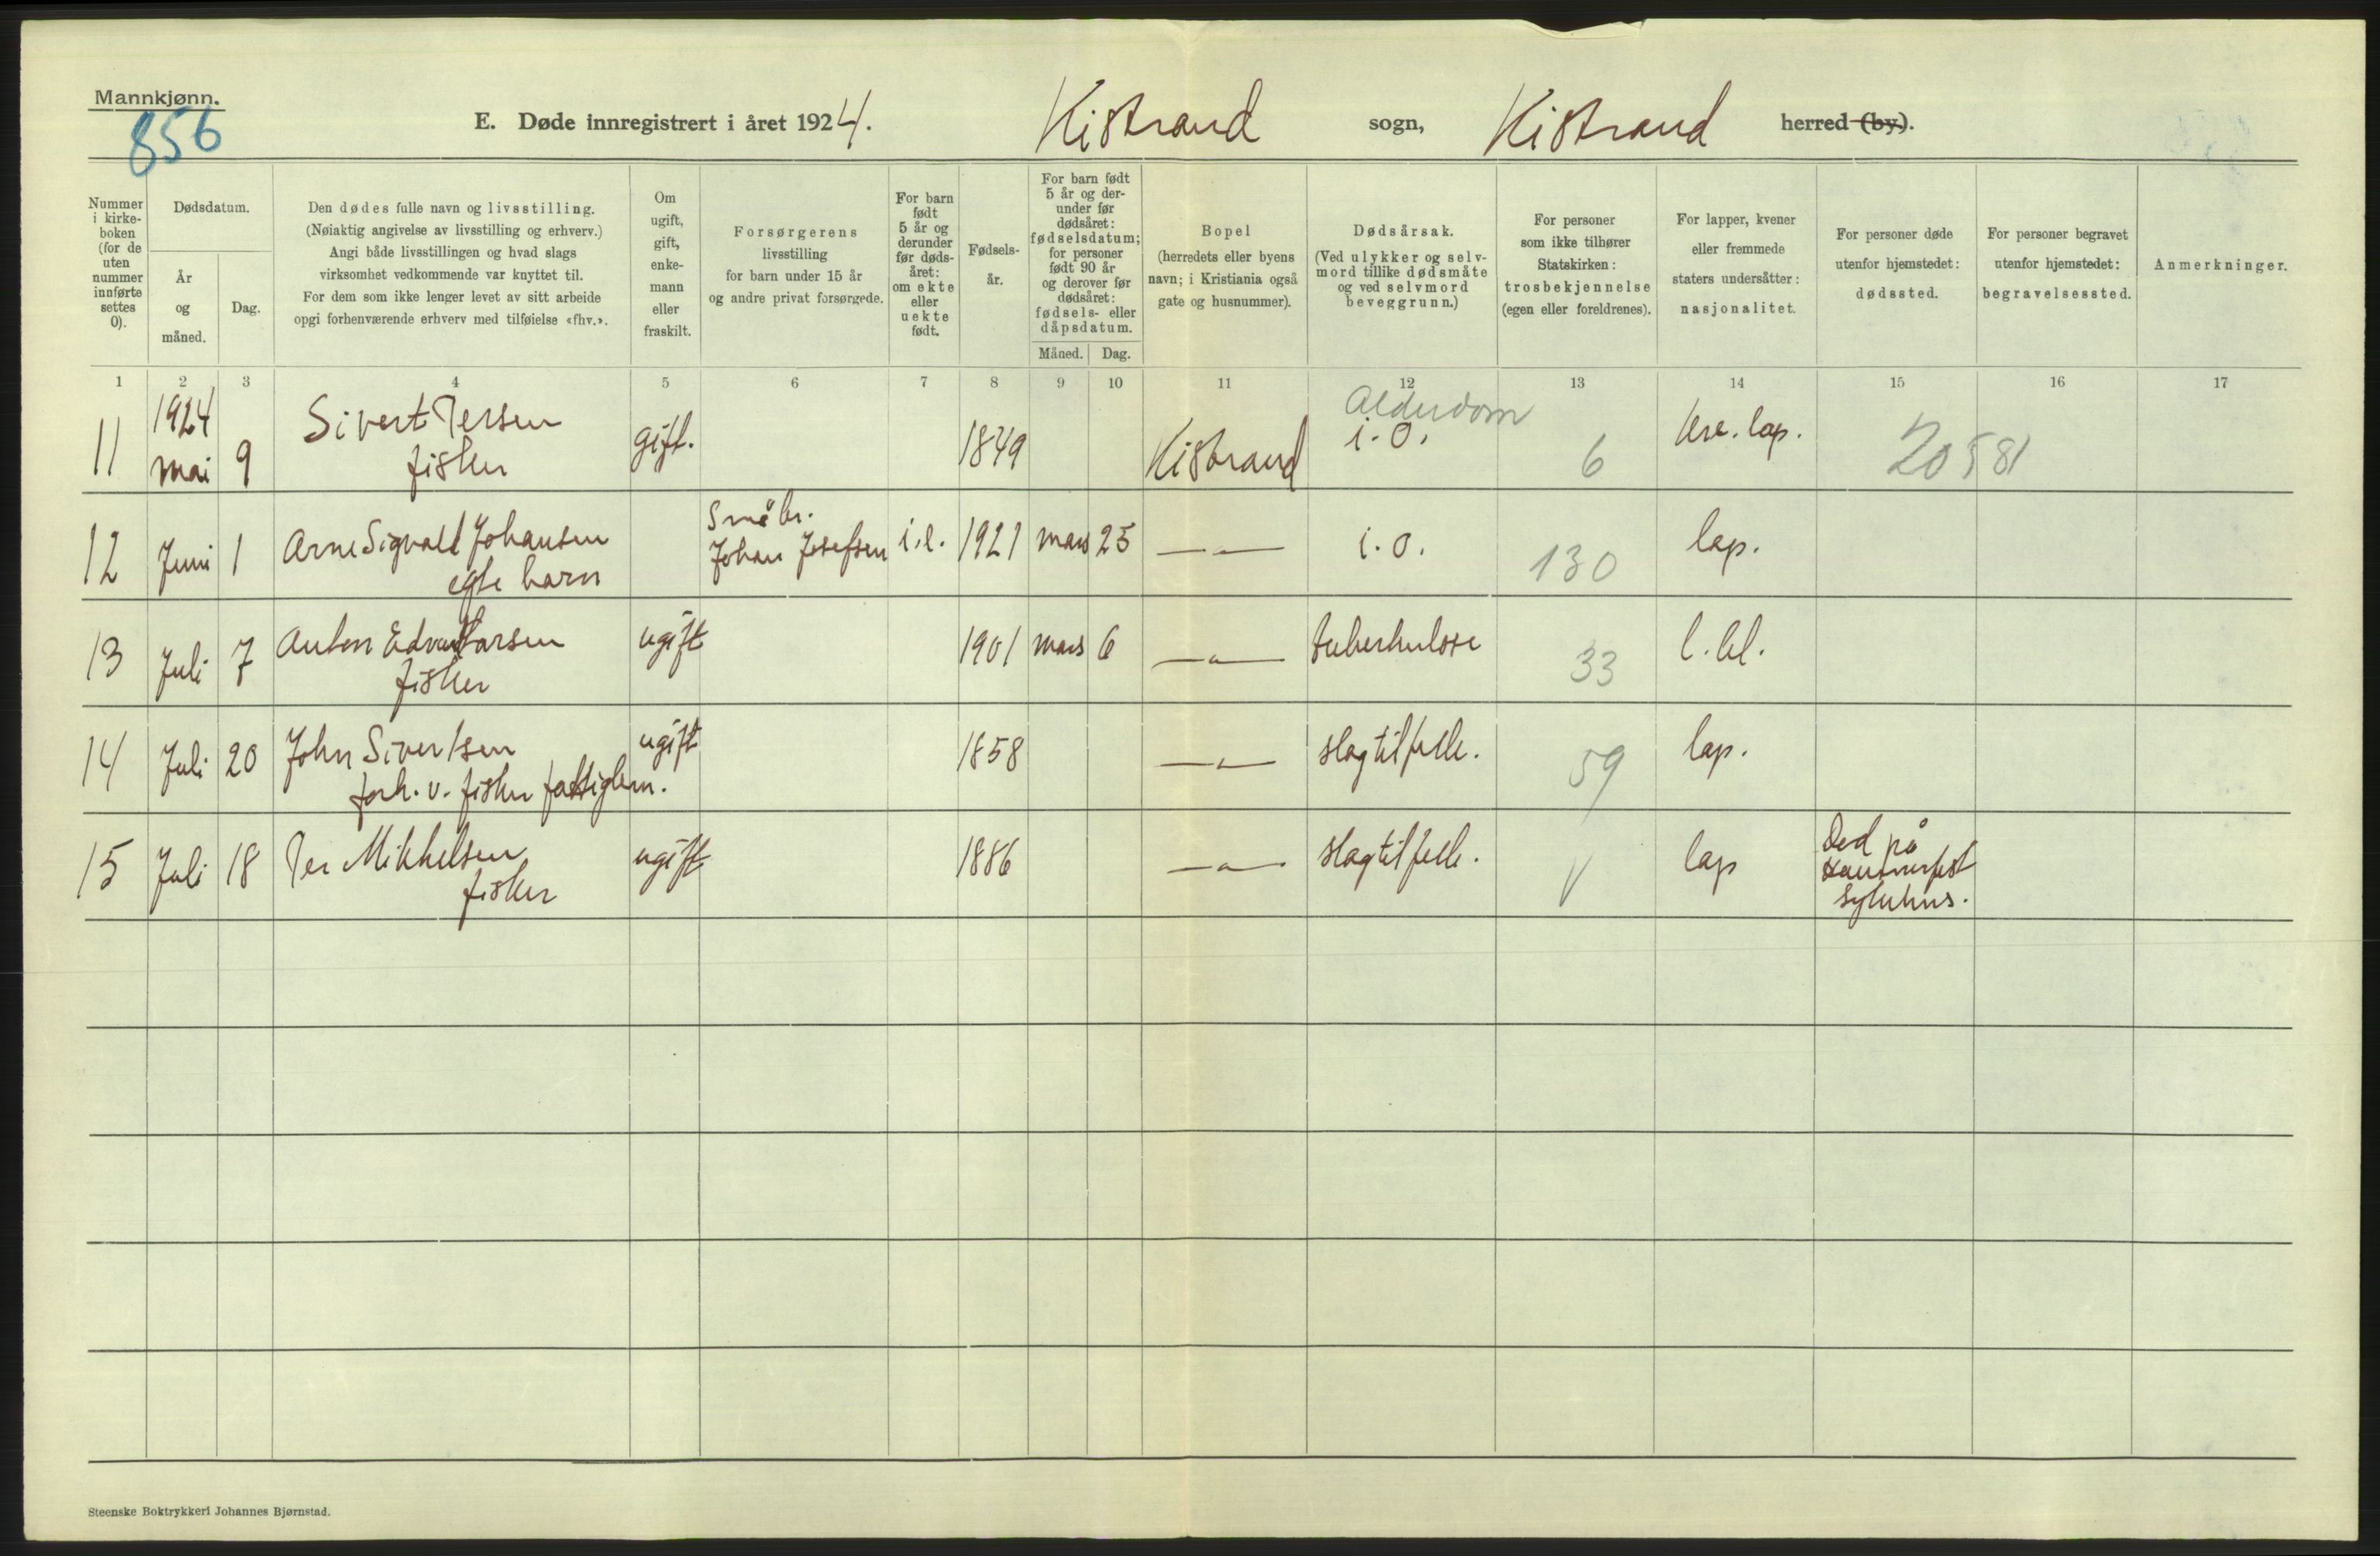 Mannkjønn.
856
E. Døde innregistrert i året 1924.
Kistrand sogn, Kistrand herred (by).
Nummer i kirkeboken (for de uten nummer innførte settes 0).
Dødsdatum.
År og måned.
Dag.
Den dødes fulle navn og livsstilling.
(Nøiaktig angivelse av livsstilling og erhverv.)
Angi både livsstillingen og hvad slags
virksomhet vedkommende var knyttet til.
For dem som ikke lenger levet av sitt arbeide
opgi forhenværende erhverv med tilføielse «fhv.».
Om ugift, gift, enkemann eller fraskilt.
Forsørgerens
livsstilling
for barn under 15 år
og andre privat forsørgede.
For barn født 5 år og derunder før dødsåret: om ekte eller uekte født.
Fødselsår.
For barn født 5 år og derunder før dødsåret: fødselsdatum; for personer født 90 år og derover før dødsåret: fødsels- eller dåpsdatum.
Måned. Dag.
Bopel
(herredets eller byens
navn; i Kristiania også
gate og husnummer).
Dødsårsak.
(Ved ulykker og selvmord tillike dødsmåte og ved selvmord beveggrunn.)
For personer
som ikke tilhører
Statskirken:
trosbekjennelse
(egen eller foreldrenes).
For lapper, kvener
eller fremmede
staters undersåtter:
nasjonalitet.
For personer døde
utenfor hjemstedet:
dødssted.
For personer begravet
utenfor hjemstedet:
begravelsessted.
Anmerkninger.
1 2 3 4 5 6 7 8 9 10 11 12 13 14 15 16 17
11 1924 mai 9 Sivert Persen fisker gift. 1849 Kistrand Alderdom i.o. 6 lap. 20581
12 Juni 1 Arne Sigvald Johansen egte barn Småbr. Johan Josefsen i.e. 1921 mars 25 —〃— i.o. 130 lap.
13 Juli 7 Anton Edvard Larsen fisker ugift 1901 mars 6 —〃— tuberkulose 33 l.bl.
14 Juli 20 John Sivertsen forh. v. fisker fattiglem. ugift 1858 —〃— slagtilfelle. 59 lap.
15 Juli 18 Per Mikkelsen fisker ugift 1886 —〃— slagtilfelle. V lap Død på Hammerfest sykehus.
Steenske Boktrykkeri Johannes Bjørnstad.